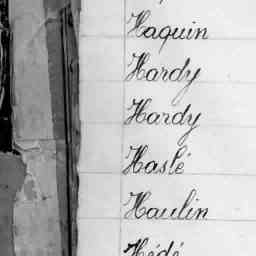 Haquin
Hardy
Hardy
Haslé
Haulin
Hédé